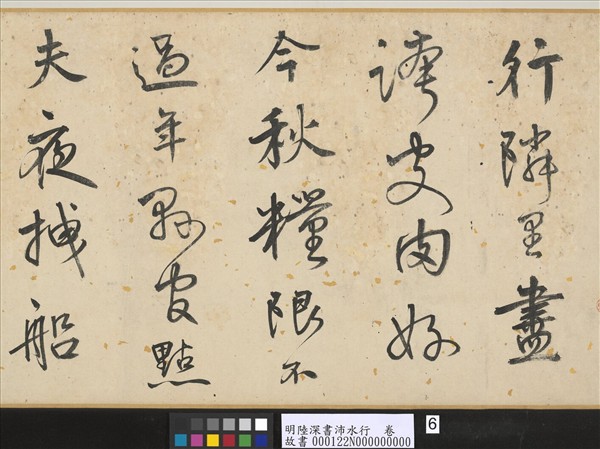 行隣里盡
誇皮肉好
今秋糧限不
過年縣官點
夫夜拽船
明陸深書沛水行　卷
故書000122N000000000
6